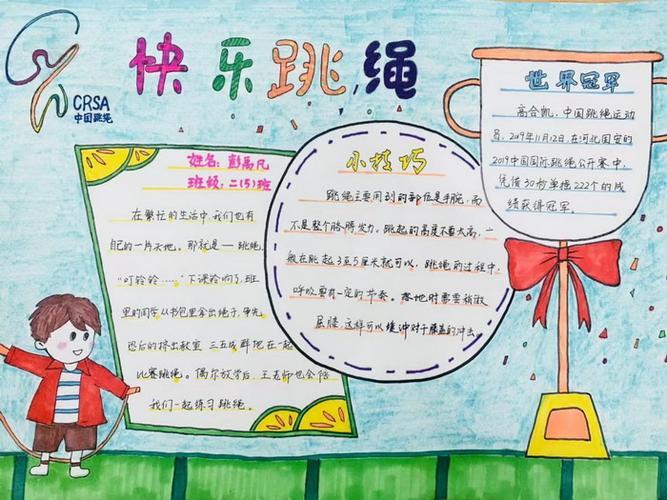 快乐跳绳
CRSA
中国跳绳
姓名：彭禹凡
班顿：二(5)班
在繁忙的生活中，我们也有
自己的一片天地。那就是——跳绳。
“叮铃铃……”下课铃响了，班
里的同学从书包里拿出绳子，争先
恐后的挤出教室，三五成群地在一起
比赛跳绳。偶尔放学后，王老师也会陪
我们一起练习跳绳。
小技巧
跳绳主要用到的部位是手腕，而
不是整个胳膊发力。跳起的高度不要太高，一
般在跳起3至5厘米就可以，跳绳的过程中，
呼吸要有一定的节奏。落地时需要稍微
屈膝，这样可以缓冲对于膝盖的冲击。
世界冠军
高合凯，中国跳绳运动
员，2019年11月12日，在河北固安的
2019中国国际跳绳公开赛中，
凭借30秒单摇222个的成
绩获得冠军。